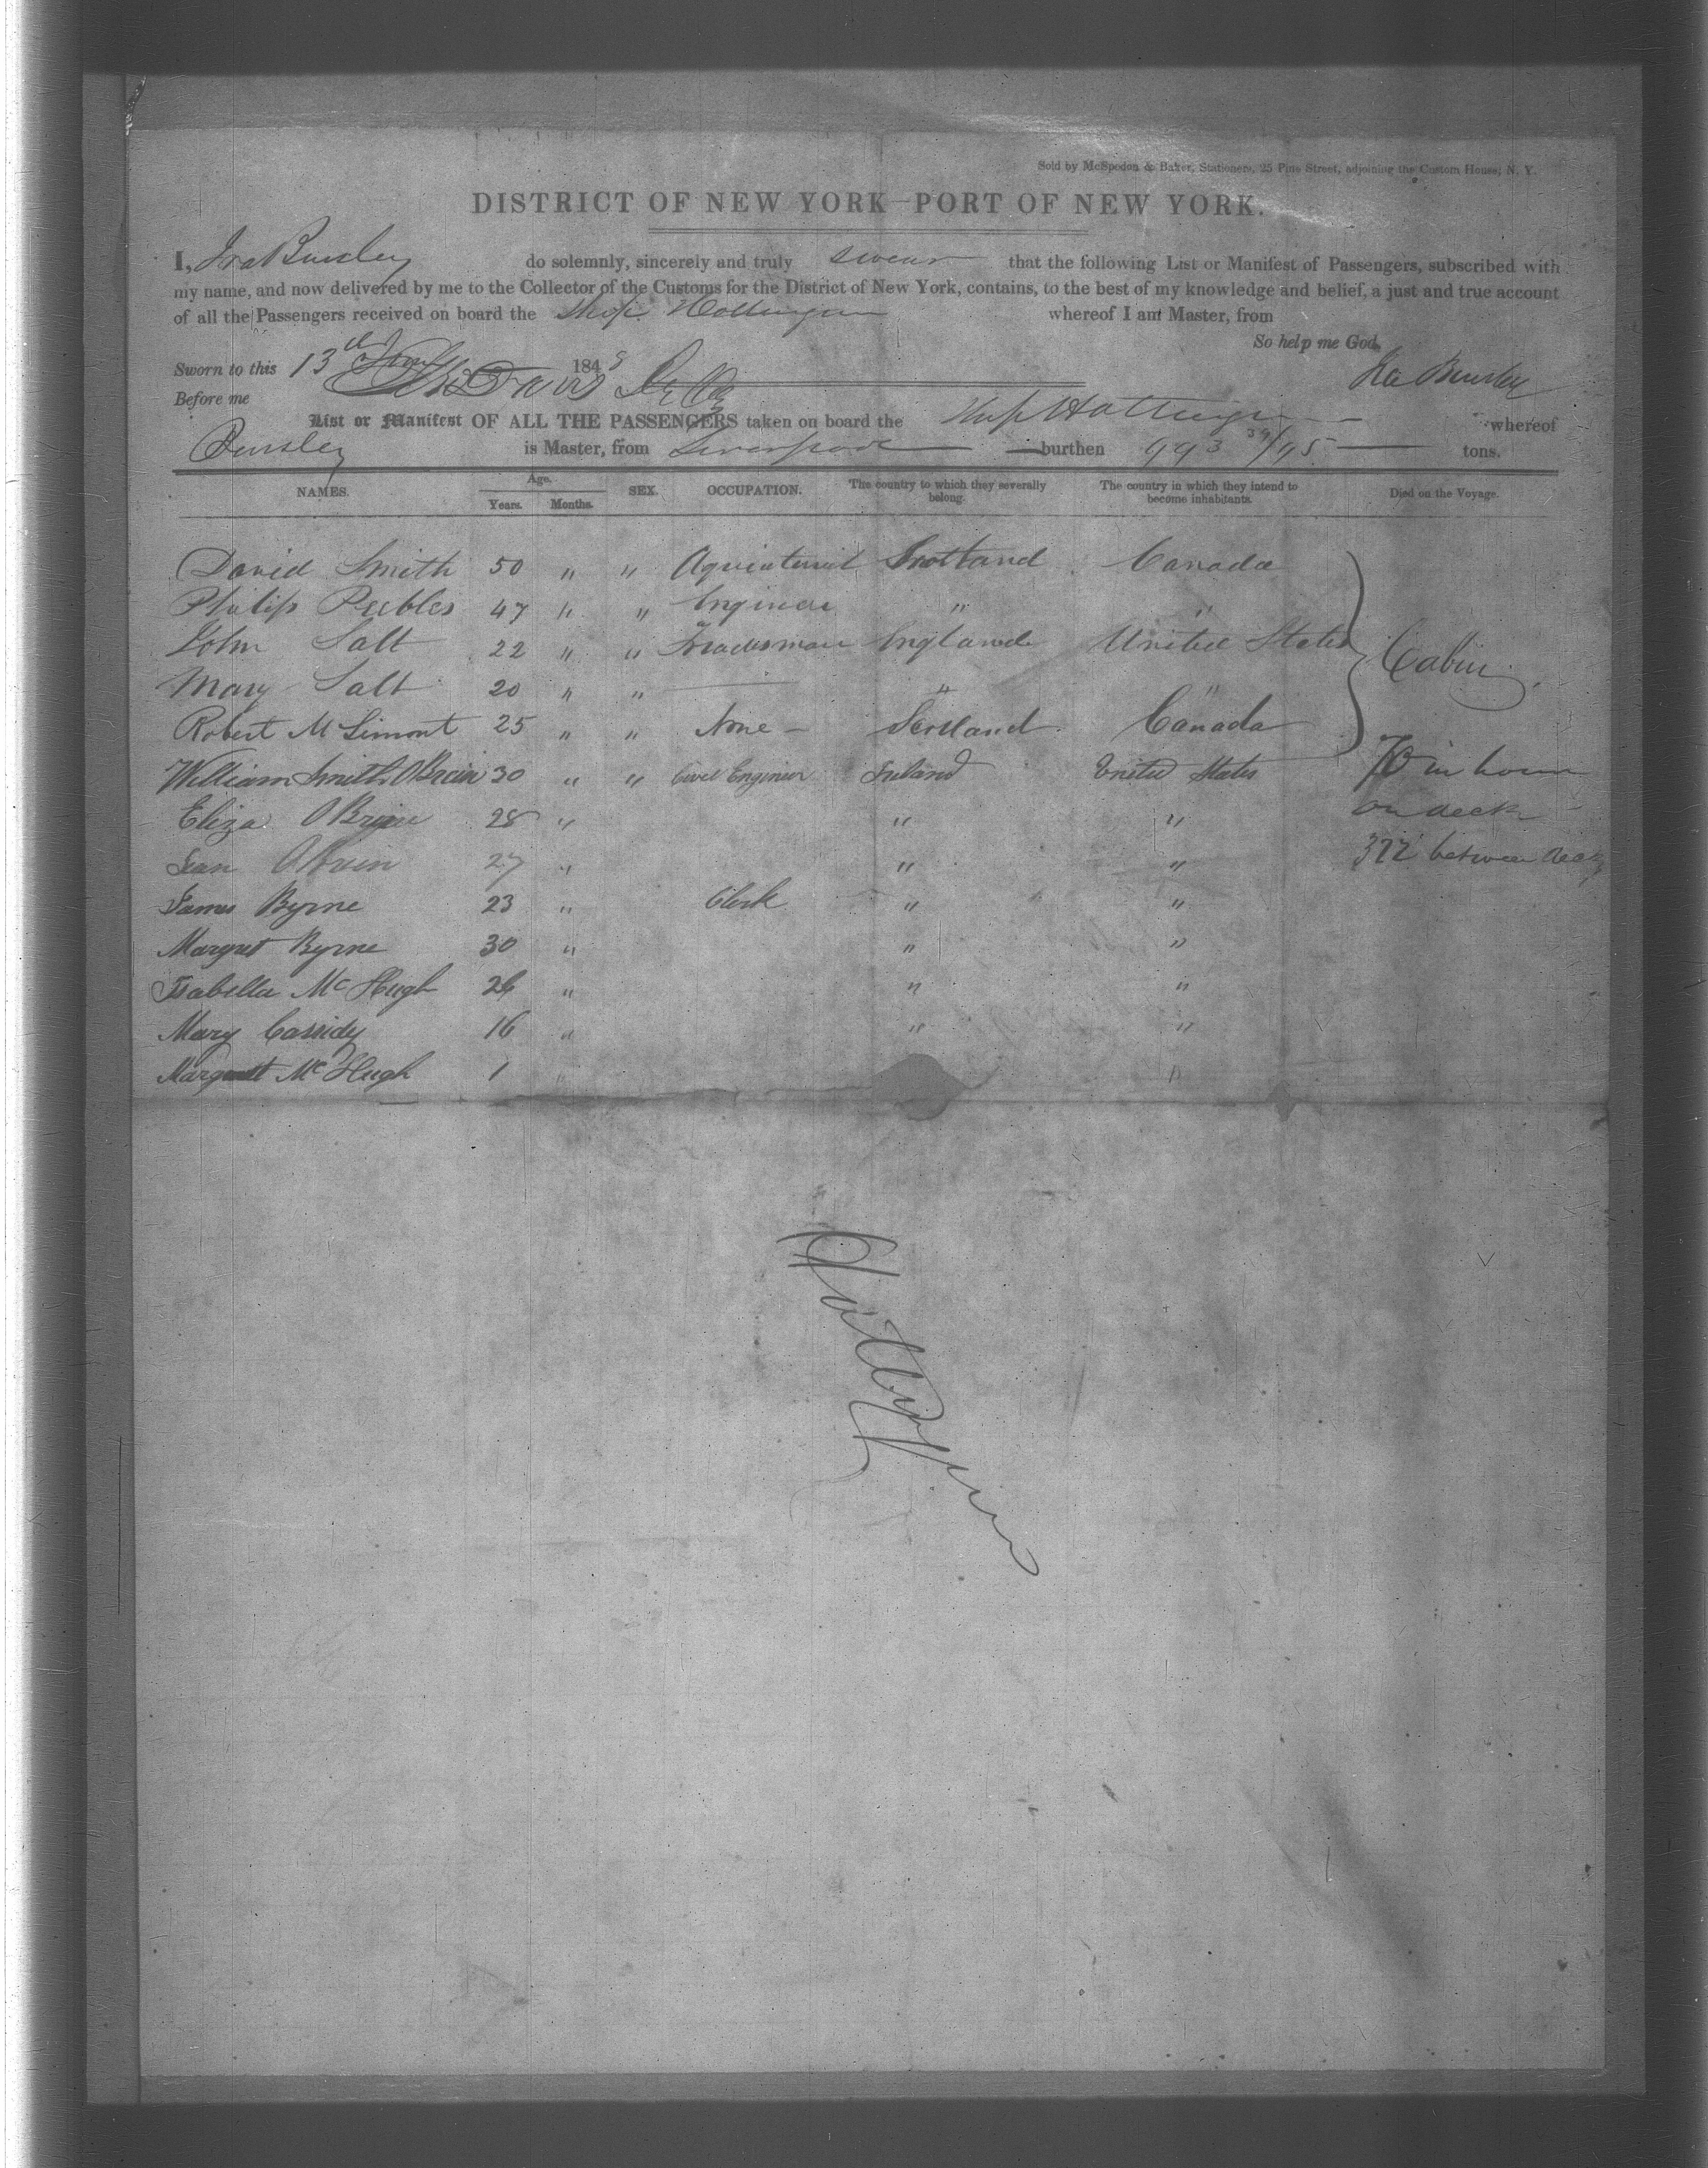 Sold by McSpedon & Baker, Stationers, 25 Pine Street, adjoining the Custom House, N. Y.
DISTRICT OF NEW YORK—PORT OF NEW YORK.
I, Ira Bursley do solemnly, sincerely and truly swear that the following List or Manifest of Passengers, subscribed with
my name, and now delivered by me to the Collector of the Customs for the District of New York, contains, to the best of my knowledge and belief, a just and true account
of all the Passengers received on board the Ship Hottinguer whereof I am Master, from
So help me God.
Sworn to this 13th 184 Ira Bursley
Before me
List or Manifest OF ALL THE PASSENGERS taken on board the Ship Hottinguer whereof
Bursley is Master, from Liverpool burthen 993 34/95 tons.
NAMES. Age. Years. Months. SEX. OCCUPATION. The country to which they severally belong. The country in which they intend to become inhabitants. Died on the Voyage.
David Smith 50 " " Scotland Canada
Philip Peebles 47 " " Engineer " "
John Salt 22 " " Tradesman England United States
Mary Salt 20 " " — " "
Cabin
Robert M Limont 25 " " None Scotland Canada
William Smith OBrien 30 " " Civil Engineer Ireland United States
70 in house
Eliza OBrien 28 " " "
on deck
Jean OBrien 27 " " "
322 between decks
James Byrne 23 " Clerk " "
Margret Byrne 30 " " "
Isabella McHugh 26 " " "
Mary Cassidy 16 " " "
Margrett McHugh 1 " "
Hottinguer